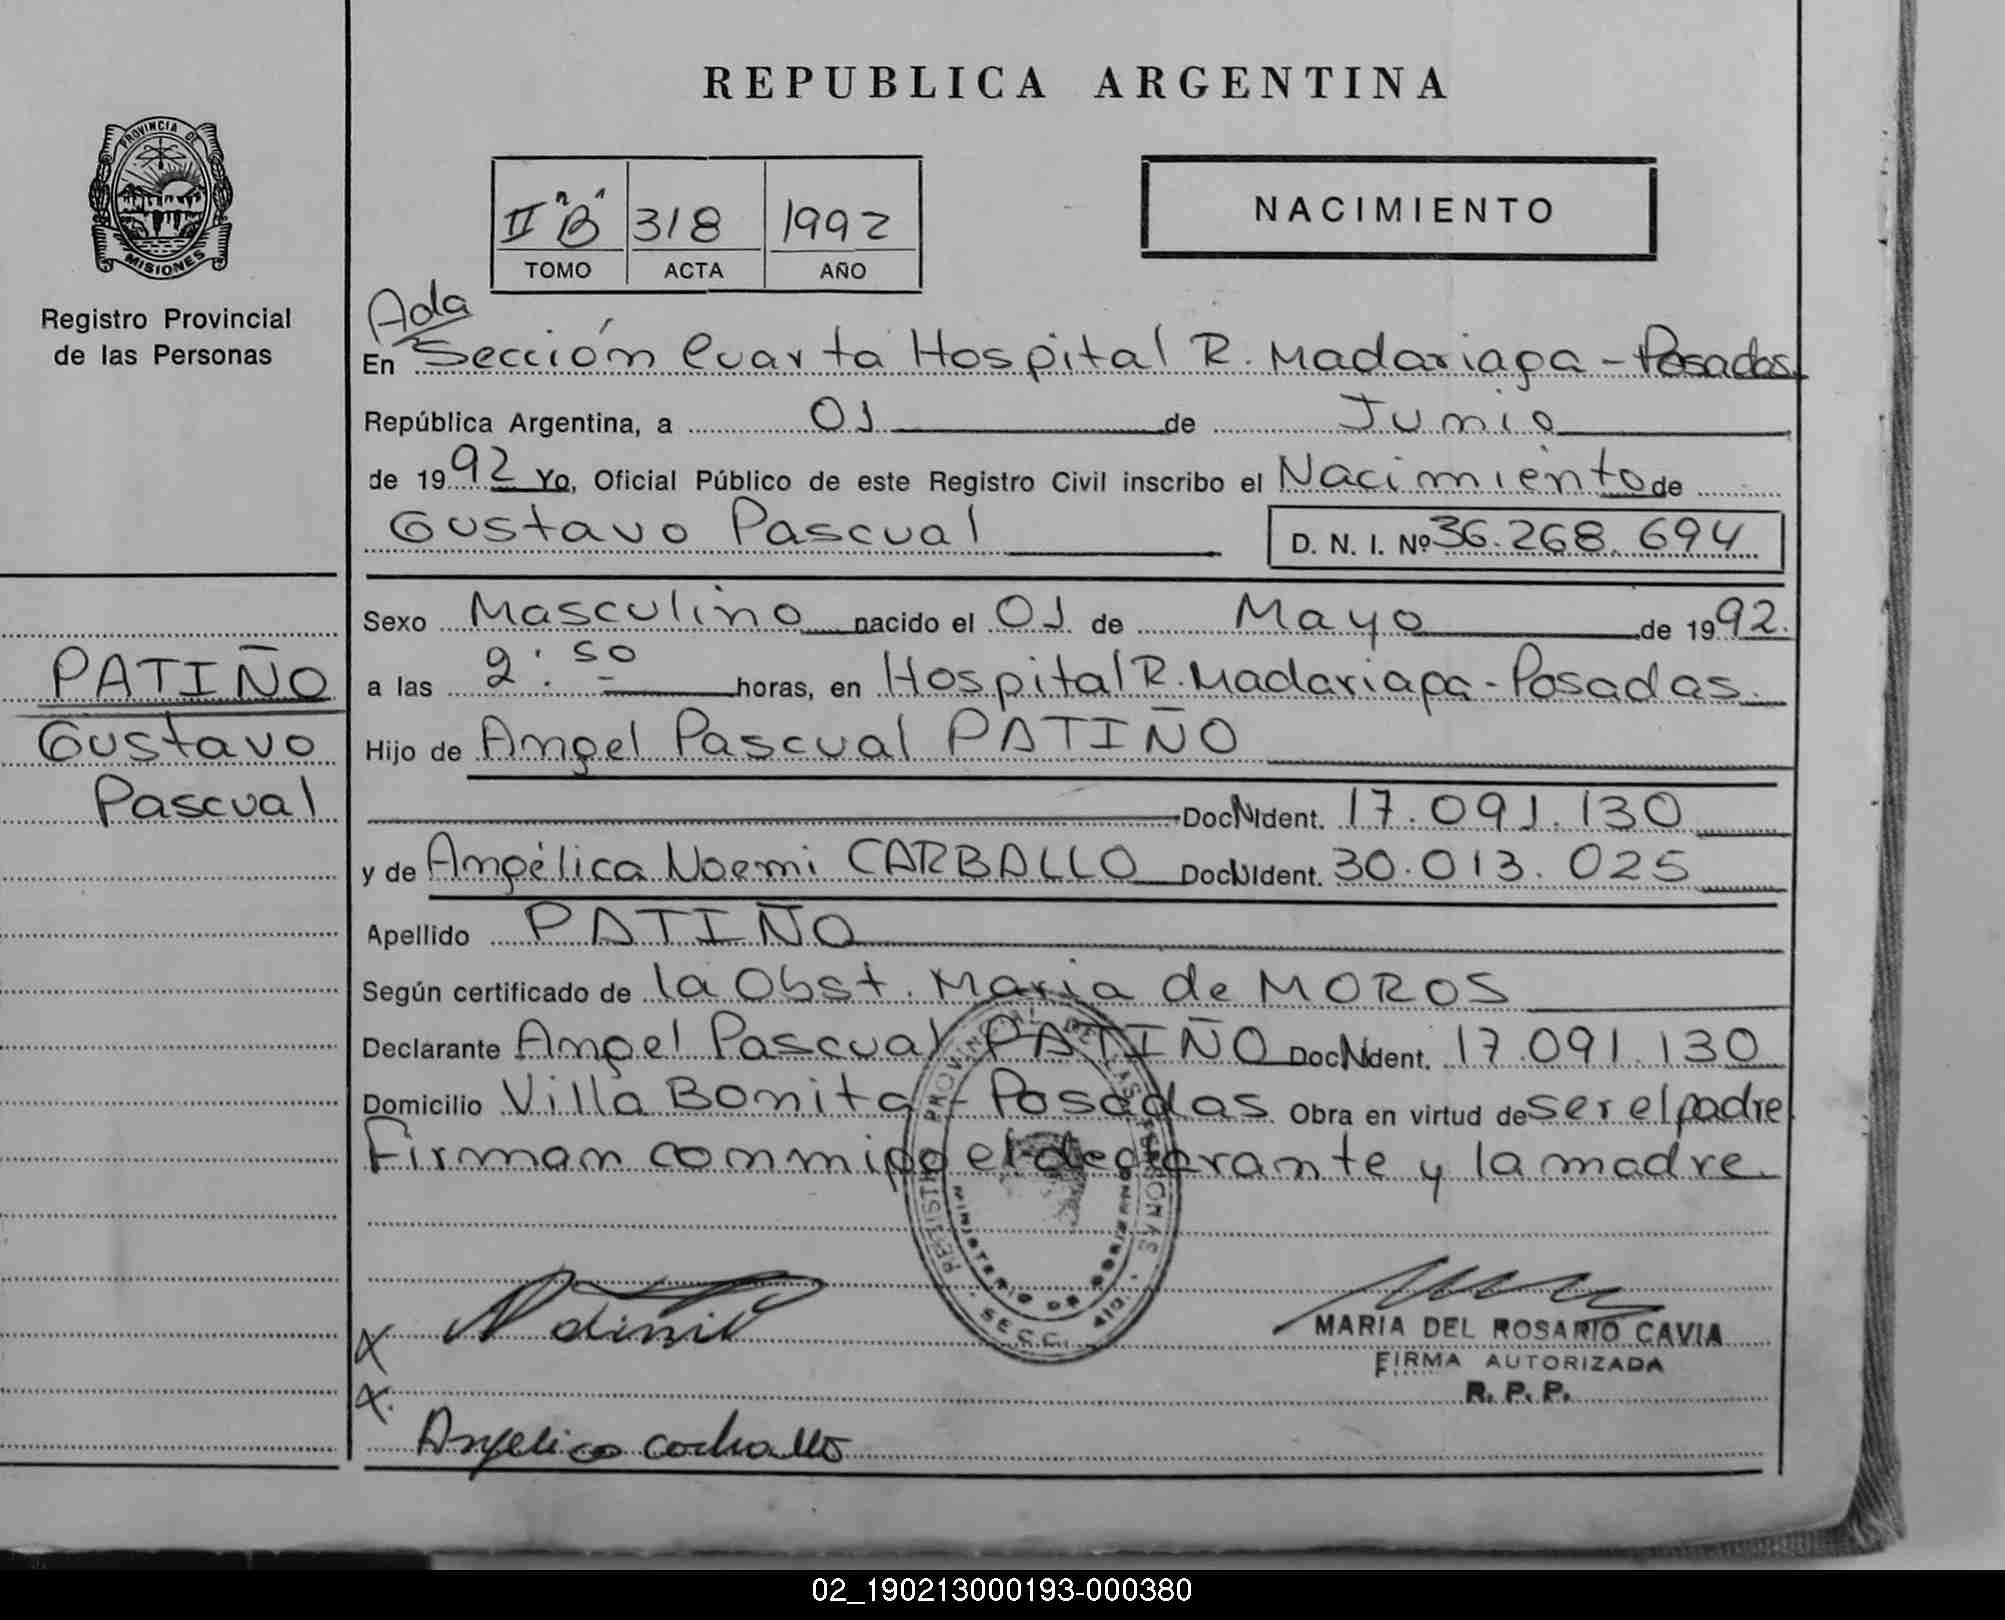 REPUBLICA ARGENTINA
PROVINCIA DE
MISIONES
Registro Provincial
de las Personas
II "B" 318 1992
TOMO ACTA AÑO
NACIMIENTO
Ada
En Sección Cuarta Hospital R. Madariaga - Posadas
República Argentina, a 01 de Junio
de 1992 Yo, Oficial Público de este Registro Civil inscribo el Nacimiento de
Gustavo Pascual D. N. I. Nº 36.268.694
Sexo Masculino nacido el 01 de Mayo de 1992.
a las 2:50 horas, en Hospital R. Madariaga - Posadas.
Hijo de Angel Pascual PATIÑO
Doc N Ident. 17.091.130
y de Angélica Noemi CARBALLO Doc N Ident. 30.013.025
Apellido PATIÑO
Según certificado de la Obst. Maria de MOROS
Declarante Angel Pascual PATIÑO Doc N Ident. 17.091.130
Domicilio Villa Bonita - Posadas Obra en virtud de ser el padre
Firman conmigo el declarante y la madre.
PATIÑO
Gustavo
Pascual
REGISTRO PROVINCIAL DE LAS PERSONAS
MINISTERIO DE GOBIERNO
SECC. 4ta.
x
MARIA DEL ROSARIO CAVIA
FIRMA AUTORIZADA
R. P. P.
x.
Angelica carballo
02_190213000193-000380